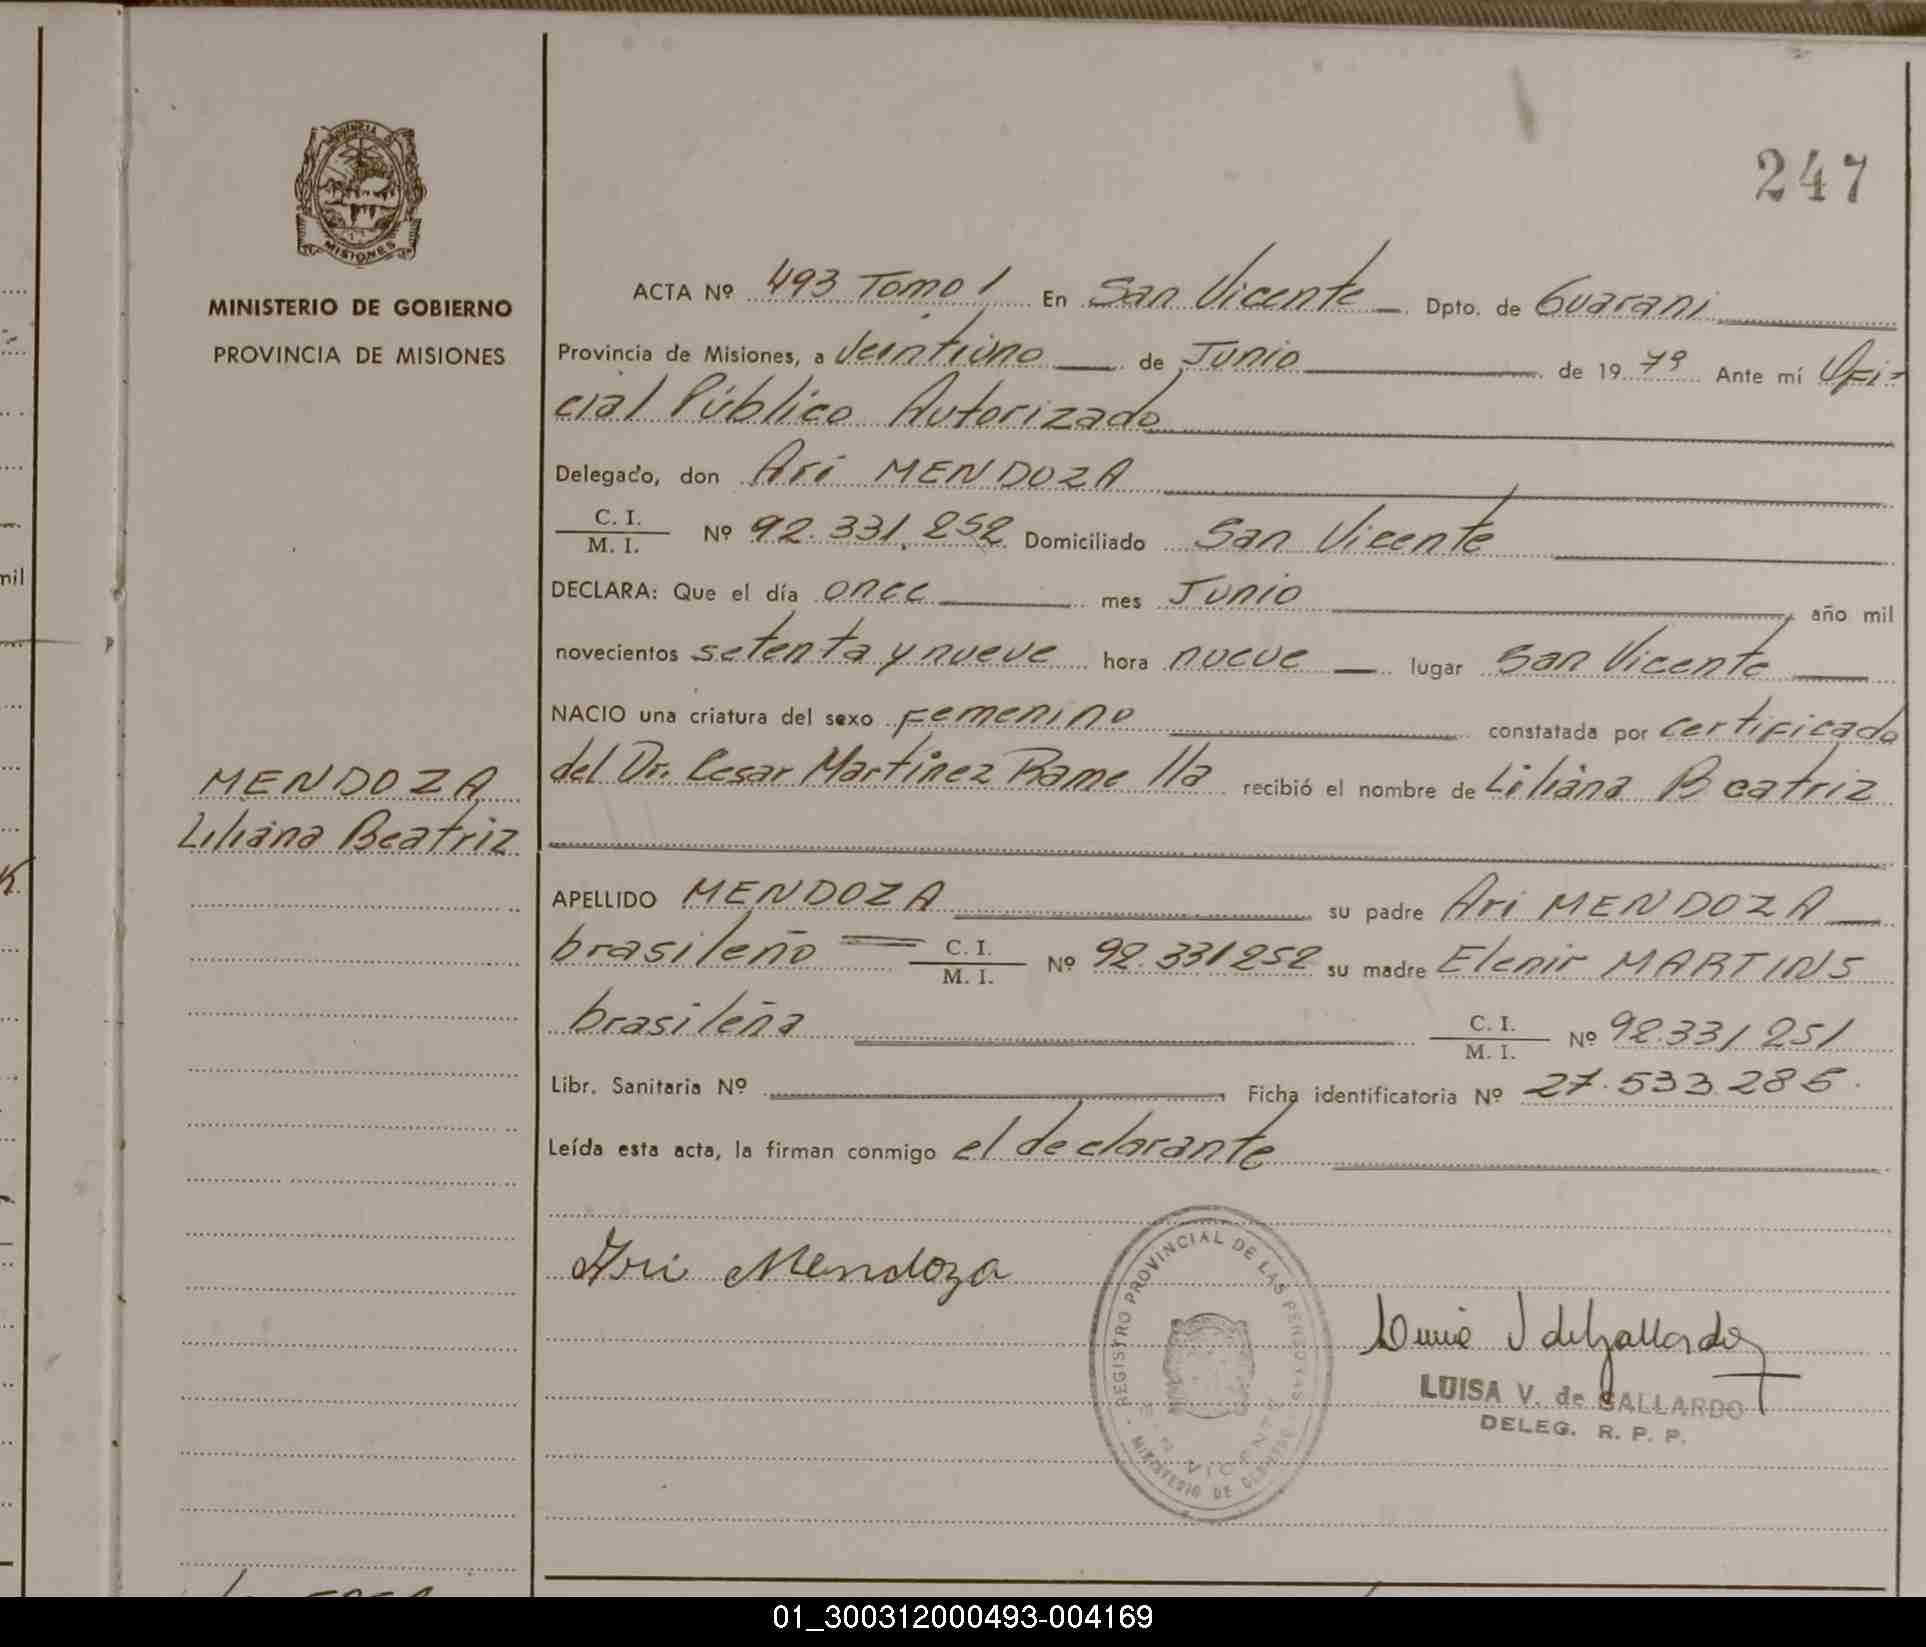 247
PROVINCIA DE
MISIONES
MINISTERIO DE GOBIERNO
PROVINCIA DE MISIONES
MENDOZA
Liliana Beatriz
ACTA Nº 493 Tomo I En San Vicente Dpto. de Guarani
Provincia de Misiones, a Veintiuno de Junio de 1979 Ante mí Ofi-
cial Público Autorizado
Delegado, don Ari MENDOZA
C. I.
M. I. Nº 92.331.252 Domiciliado San Vicente
DECLARA: Que el día once mes Junio año mil
novecientos setenta y nueve hora nueve lugar San Vicente
NACIO una criatura del sexo Femenino constatada por certificado
del Dr. Cesar Martinez Ramella recibió el nombre de Liliana Beatriz
APELLIDO MENDOZA su padre Ari MENDOZA
brasileño C. I.
M. I. Nº 92.331252 su madre Elenir MARTINS
brasileña C. I.
M. I. Nº 92.331251
Libr. Sanitaria Nº Ficha identificatoria Nº 27.533.285.
Leída esta acta, la firman conmigo el declarante
Ari Mendoza
REGISTRO PROVINCIAL DE LAS PERSONAS
VICENTE
MINISTERIO DE GOBIERNO
LUISA V. de GALLARDO
DELEG. R. P. P.
01_300312000493-004169